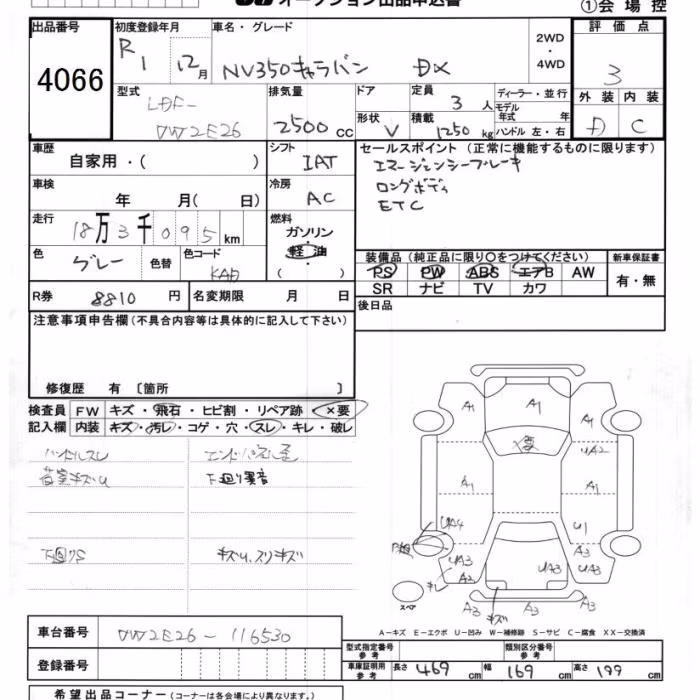 オークション出品申込書
①会場控
出品番号
4066
初度登録年月
R1 12月
車名・グレード
NV350キャラバン DX
2WD・4WD
評価点
3
型式
LDF-
VW2E26
排気量
2500cc
ドア
定員 3人
ディーラー・並行
モデル年式 年式
外装 内装
D C
形状 V
積載 1250kg
ハンドル 左・右
車歴
自家用・( )
シフト
IAT
セールスポイント(正常に機能するものに限ります)
エマージェンシーブレーキ
ロングボディ
ETC
車検
年 月(日)
冷房
AC
走行
18万3千095km
燃料
ガソリン
軽油
( )
色
グレー
色替
色コード
KAD
装備品(純正品に限り〇をつけてください)
PS PW ABS エアB AW
SR ナビ TV カワ
新車保証書
有・無
R券 8810円
名変期限 月 日
後日品
注意事項申告欄(不具合内容等は具体的に記入して下さい)
修復歴 有〔箇所 〕
検査員 FW キズ・飛石・ヒビ割・リペア跡・×要
記入欄 内装 キズ・汚レ・コゲ・穴・スレ・キレ・破レ
ハンドルスレ
荷室キズU
下廻り異音
下回りS
キズU.スリキズ
A1 A1 A1
×要 UA2
A1 A1
UA4 U1
A3
UA3 UA3 UA3
キレ A2
スペア
A3 キズ A3
A-キズ E-エクボ U-凹み W-補修跡 S-サビ C-腐食 XX-交換済
車台番号 VW2E26-116530
型式指定番号 参考
類別区分番号 参考
登録番号
車庫証明用 参考
長さ 469cm 幅 169cm 高さ 199cm
希望出品コーナー(コーナーは各会場により異なります。)